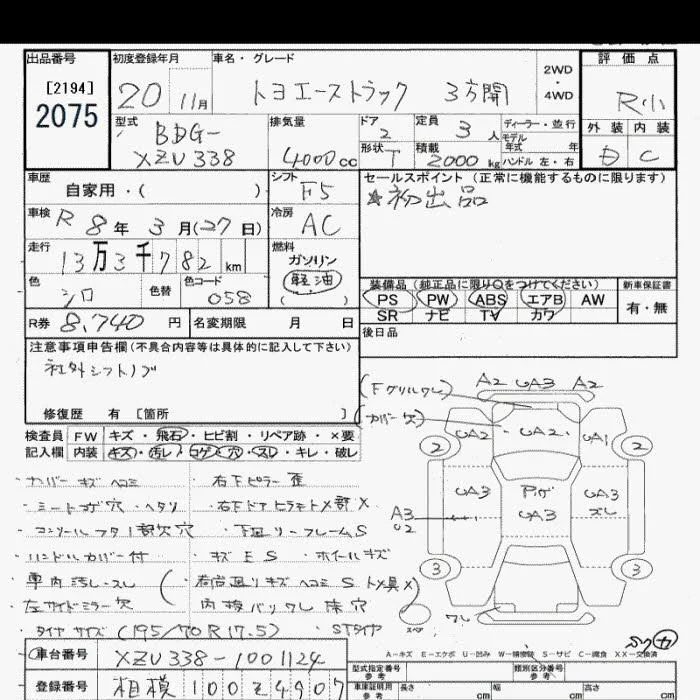 出品番号 初度登録年月 車名・グレード 評価点
[2194]
2075
20 11月 トヨエーストラック 3方開 2WD・4WD R小
型式 排気量 ドア 定員 ディーラー・並行 外装 内装
BDG-
XZU338 4000cc 2 3人 モデル年式 年
形状 T 積載 2000kg ハンドル 左・右 D C
車歴 シフト セールスポイント (正常に機能するものに限ります)
自家用・( ) F5 ★初出品
車検 R8年3月(27日) 冷房 AC
走行 13万3千782km 燃料 ガソリン
軽油
( )
色 シロ 色替 色コード 058
装備品 (純正品に限り○をつけてください) 新車保証書
PS PW ABS エアB AW 有・無
SR ナビ TV カワ
R券 8,740円 名変期限 月 日 後日品
注意事項申告欄(不具合内容等は具体的に記入して下さい)
社外シフトノブ
修復歴 有 [箇所 ]
検査員 FW キズ・飛石・ヒビ割・リペア跡・×要
記入欄 内装 キズ・汚レ・コゲ・穴・スレ・キレ・破レ
(Fグリルワレ)
(カバー欠)
A2 UA3 A2
UA2 UA2 UA1
2 2
UA3 アゲ UA3 UA3 ズレ
A3
U2
3 3
ワレ
スペア
・右下ピラー 歪
・シートコゲ穴・ヘタリ
・ハンドルカバー付 ・キズES ・ホイールキズ
・車内汚レ・スレ
・左サイドミラー欠
・タイヤサイズ(195/70R17.5) ・STタイヤ
A-キズ E-エクボ U-凹み W-補修跡 S-サビ C-腐食 XX-交換済
車台番号 XZU338-1001124
登録番号 相模100そ4907
型式指定番号 類別区分番号
参考 参考
車庫証明用 参考 長さ cm 幅 cm 高さ cm